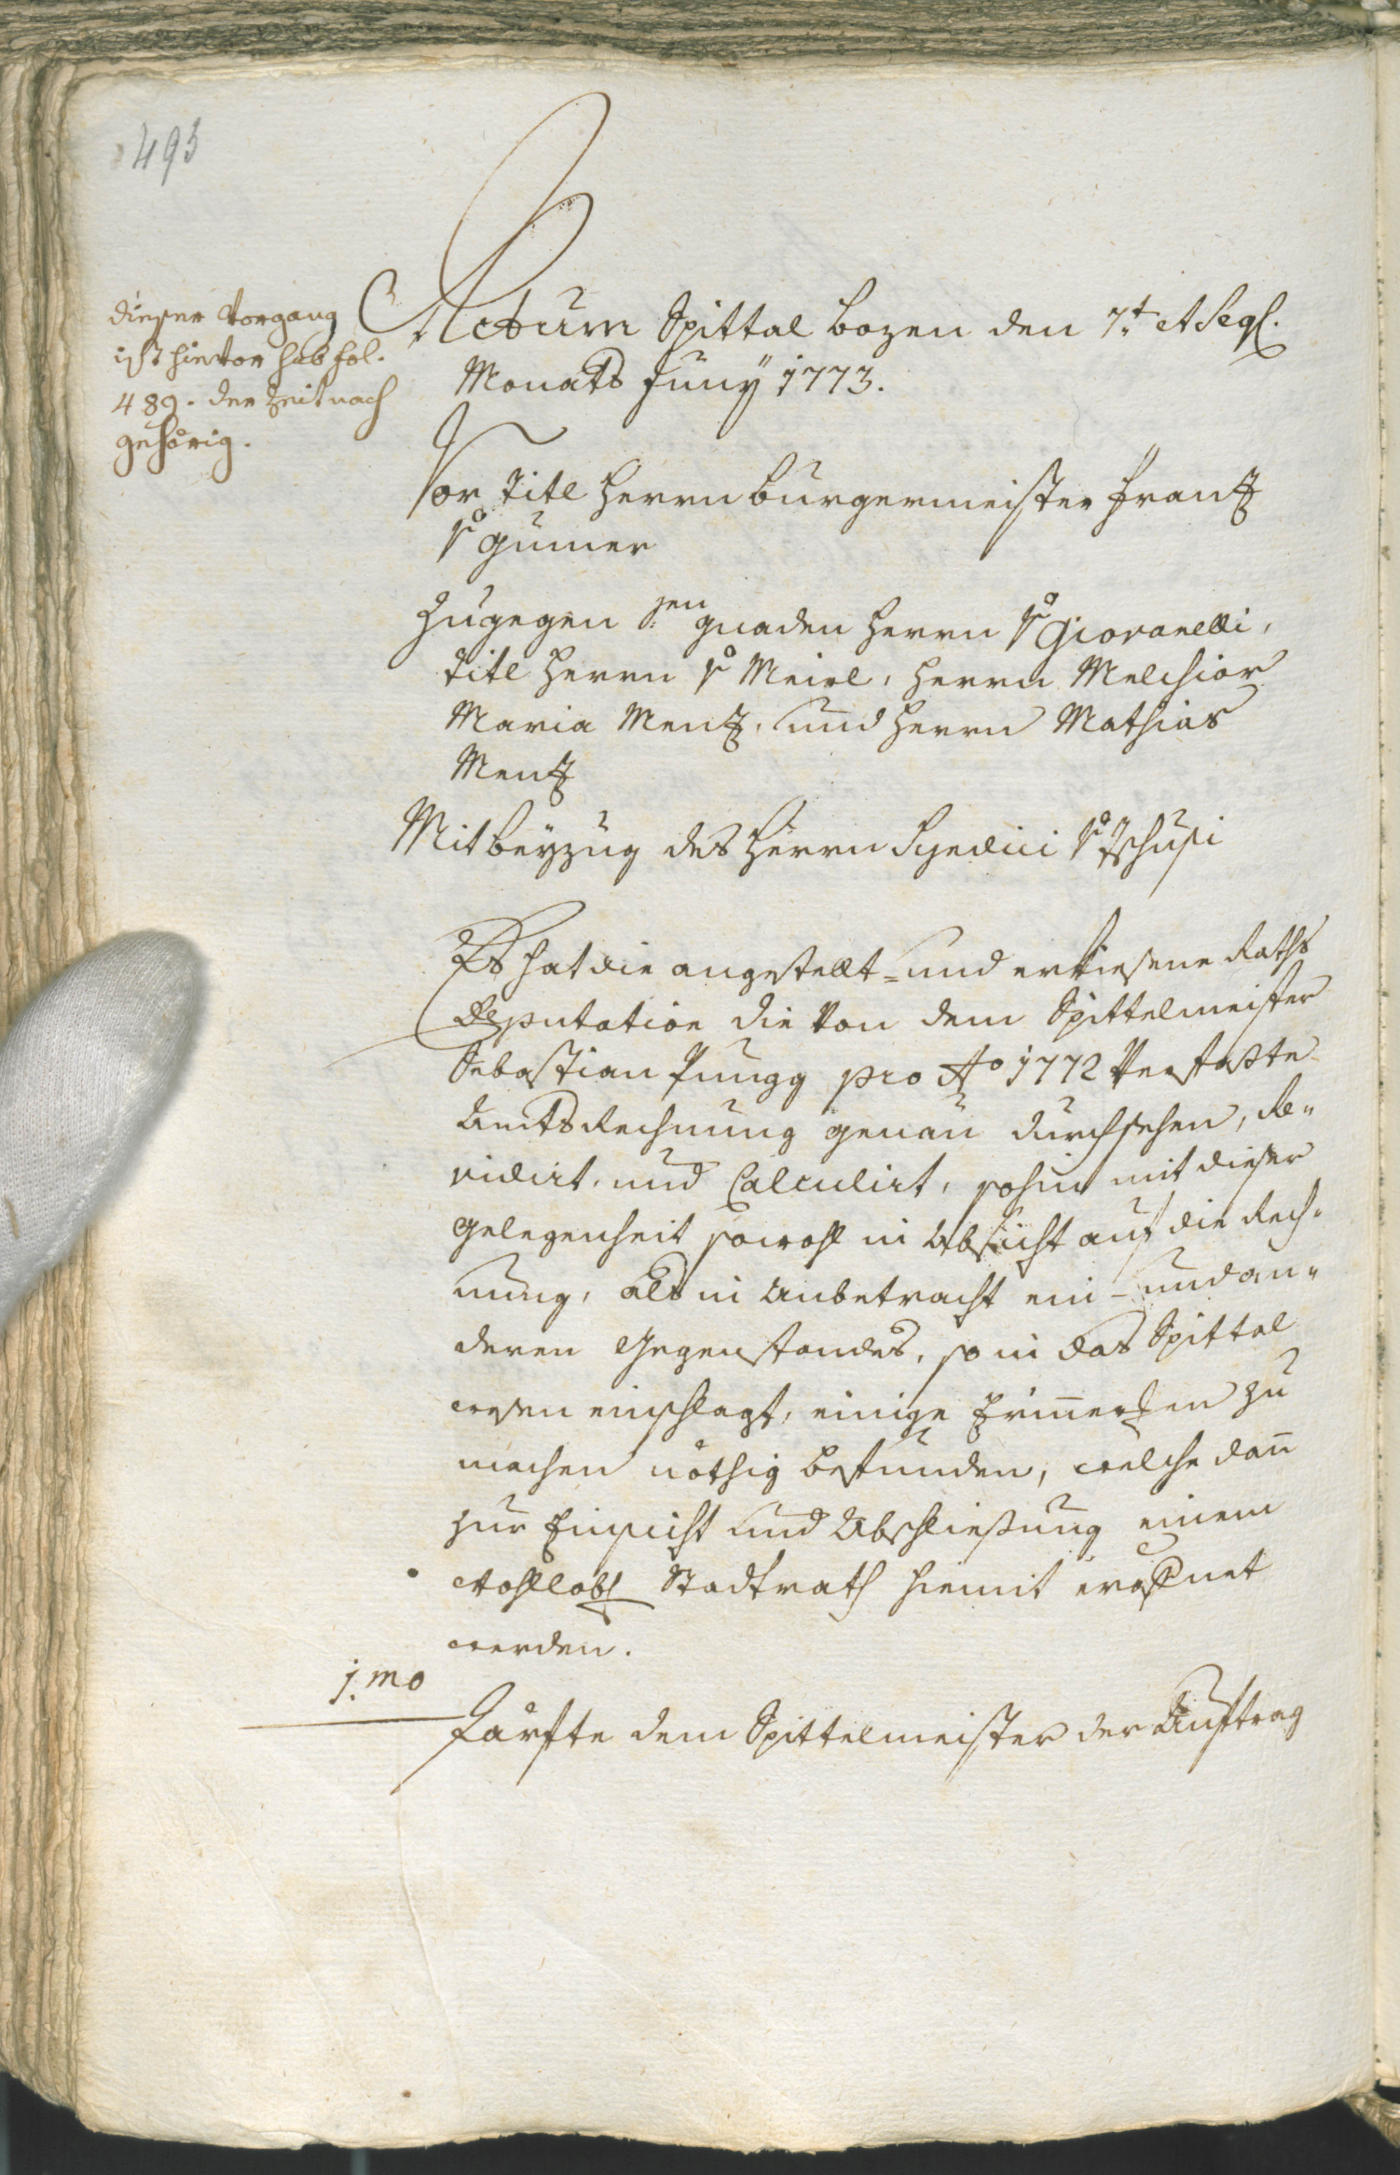 493
dieser Vorgang
ist hievor sub fol.
489. der Zeit nach
gehörig.
Actum Spittal Bozen den 7.t et Seql.
Monats Juny 1773.
Vor Titl Herrn Burgermeister Frantz
v Gumer
Zugegen gnaden Herrn v Giovanelli,
Titl Herrn v Meirl, Herrn Melchior
Maria Mentz, und Herrn Mathias
Mentz
Mit beyzug des Herrn Syndici v Tschusi
Es hat die angestellt- und erkiesene Raths
Deputation die von dem Spittelmeister
Sebastian Pungg pro Ao 1772 Verfaßte
Amts Rechnung genau durchsehen, Re-
vidirt, und Calculirt, sohin mit dieser
gelegenheit sowohl in Absicht auf die Rech-
nung, als in Anbetracht ein- und an-
deren Gegenstandes, so in das Spittal
wesen einschlagt, einige zu
machen nöthig befunden, welche dann
zur Einsicht und Abschließung einem
Wohllobl Stadtrath hiemit eröffnet
werden.
1.mo
Därfte dem Spittelmeister der Auftrag